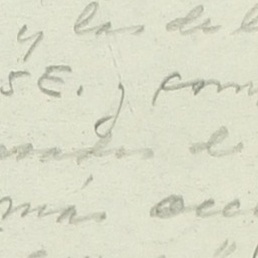 y las de l
SE. y com
sados de
más occ